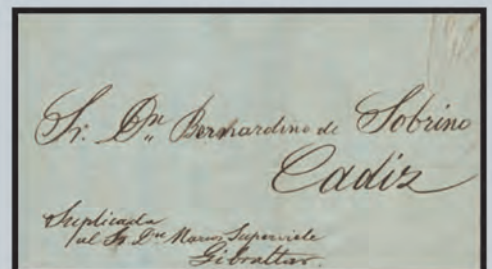 Sr. Dn. Bernardino de Sobrino
Cadiz
Suplicada
al Sr. Dn. Marcos Superviele
Gibraltar.